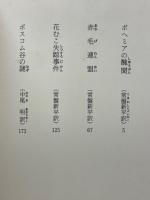 ボヘミアの醜聞 (常盤新平訳) 5
赤毛連盟 (常盤新平訳) 67
花むこ失踪事件 (常盤新平訳) 125
ボスコム谷の謎 (中尾明訳) 173